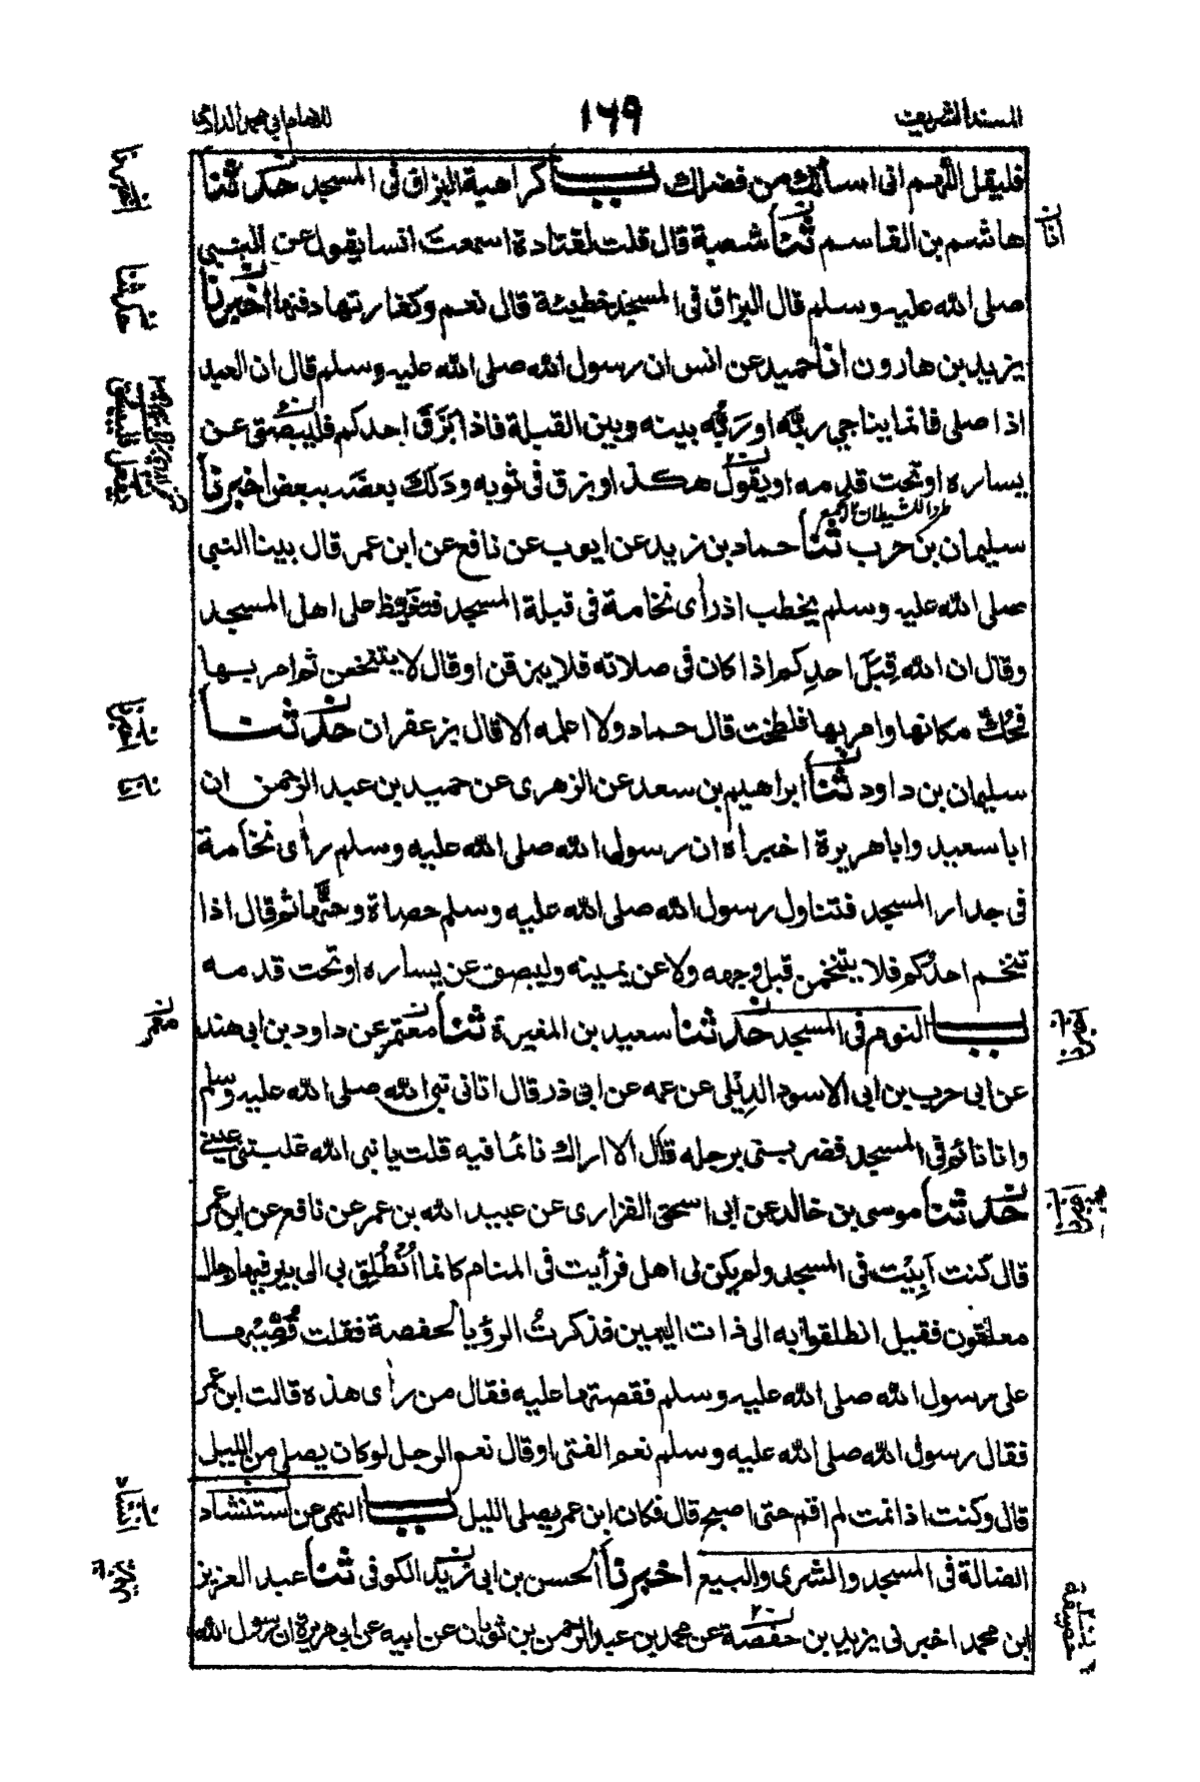 المسند الشريف
١٦٩
للامام ابي محمد الدارمي
فليقل اللهم انى اسألك من فضلك باب كراهية البزاق فى المسجد حدثنا
هاشم بن القاسم ثنا شعبة قال قلت لقتادة اسمعت انسا يقول عن النبي
صلى الله عليه وسلم قال البزاق فى المسجد خطيئة قال نعم وكفارتها دفنها اخبرنا
يزيد بن هارون انا حميد عن انس ان رسول الله صلى الله عليه وسلم قال ان العبد
اذا صلى فانما يناجي ربَّه او رَبُّه بينه وبين القبلة فاذا بَزَقَ احدكم فليبصق عن
يساره او تحت قدمه او يقول هكذا وبزق فى ثوبه ودَلَكَ بعضَه ببعض اخبرنا
سليمان بن حرب ثنا حماد بن زيد عن ايوب عن نافع عن ابن عمر قال بينا النبي
صلى الله عليه وسلم يخطب اذ رأى نخامة فى قبلة المسجد فتغيَّظ على اهل المسجد
وقال ان الله قِبَلَ احدِكم اذا كان فى صلاته فلا يبزقن او قال لا يتنخمن ثم امر بها
فحُكَّ مكانها وامر بها فلطخت قال حماد ولا اعلمه الا قال بزعفران حدثنا
سليمان بن داود ثنا ابراهيم بن سعد عن الزهرى عن حميد بن عبد الرحمن ان
ابا سعيد وابا هريرة اخبراه ان رسول الله صلى الله عليه وسلم رأى نخامة
فى جدار المسجد فتناول رسول الله صلى الله عليه وسلم حصاة وحتَّها ثم قال اذا
تنخم احدُكم فلا يتنخمن قبل وجهه ولا عن يمينه وليبصق عن يساره او تحت قدمه
باب النوم فى المسجد حدثنا سعيد بن المغيرة ثنا معتمر عن داود بن ابى هند
عن ابى حرب بن ابى الاسود الدِيْلى عن عمه عن ابى ذر قال اتانى نبي الله صلى الله عليه وسلم
وانا نائم فى المسجد فضربنى برجله قال الا اراك نائما فيه قلت يا نبى الله غلبتنى عينى
حدثنا موسى بن خالد عن ابى اسحق الفزارى عن عبيد الله بن عمر عن نافع عن ابن عمر
قال كنت آبِيْت فى المسجد ولم يكن لى اهل فرأيت فى المنام كانما اُنْطُلِق بي الى بير فيها رجال
معلقون فقيل انطلقوا به الى ذات اليمين فذكرتُ الرؤيا لحفصة فقلت قُصِّيْها
على رسول الله صلى الله عليه وسلم فقصتها عليه فقال من رأى هذه قالت ابن عمر
فقال رسول الله صلى الله عليه وسلم نعم الفتى او قال نعم الرجل لو كان يصلى من الليل
قال وكنت اذا نمت لم اقم حتى اصبح قال فكان ابن عمر يصلى الليل باب النهى عن استنشاد
الضالة فى المسجد والمشرى والبيع اخبرنا الحسن بن ابى زيد الكوفى ثنا عبد العزيز
ابن محمد اخبرنى يزيد بن حفصة عن محمد بن عبد الرحمن بن ثوبان عن ابيه عن ابى هريرة ان رسول الله